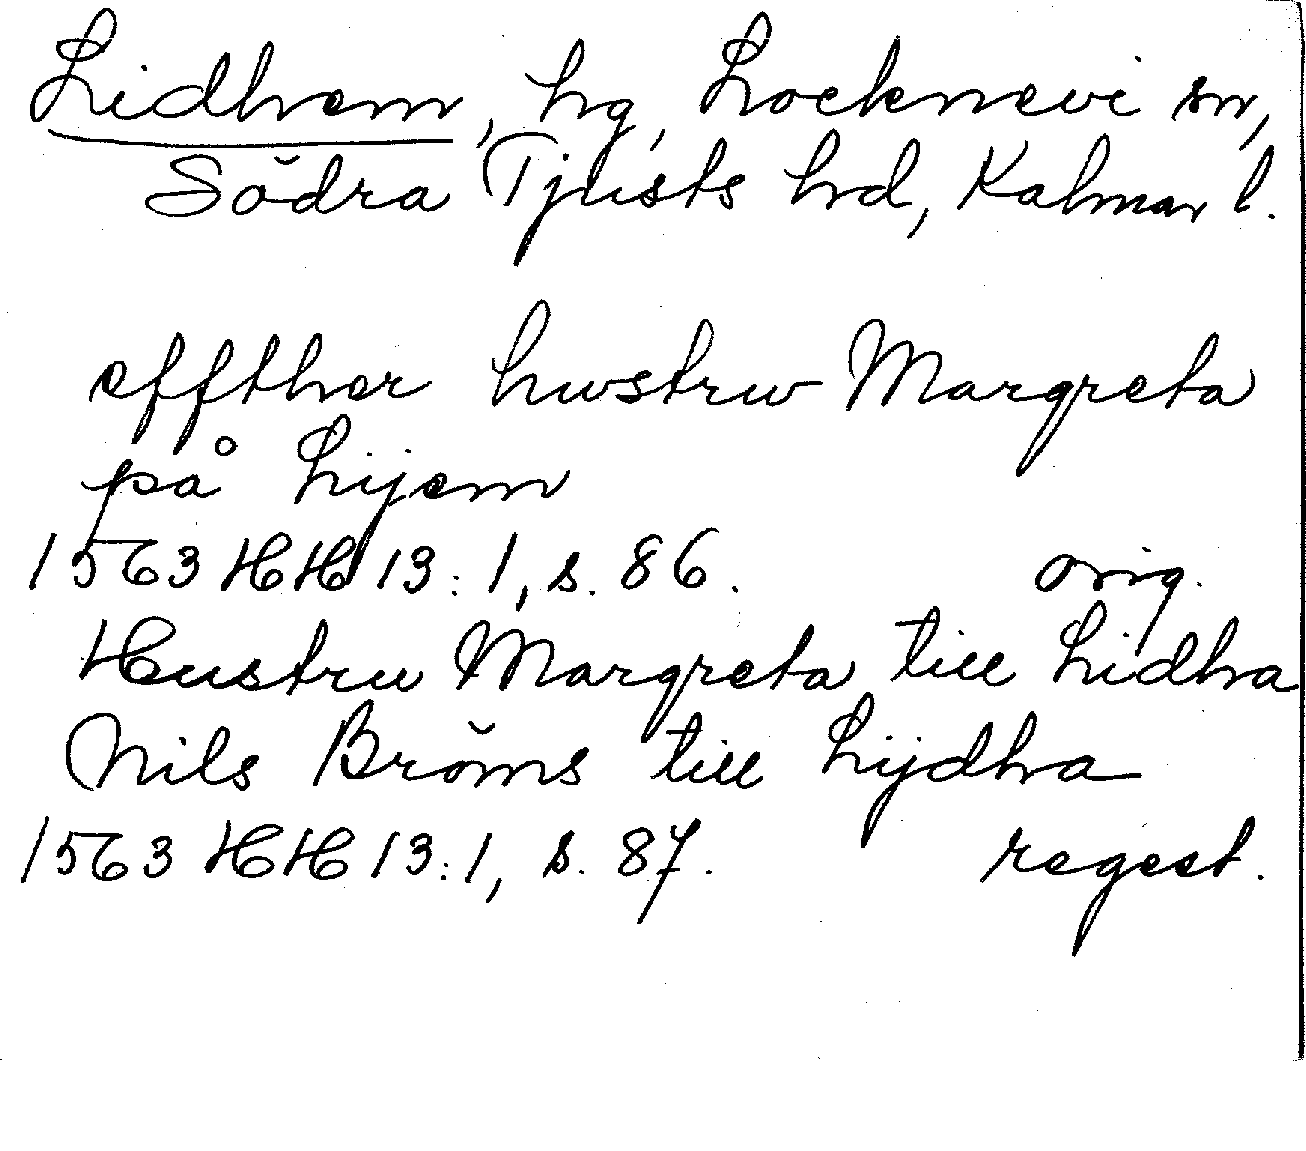 Lidhem, hg, Locknevi sn,
Södra Tjusts hrd, Kalmar l.
effther hwstrw Margreta
på Lijem
1563 HH 13:1, s. 86. orig.
Hustru Margreta till Lidha
Nils Bröms till Lijdha
1563 HH 13:1, s. 87. regest.